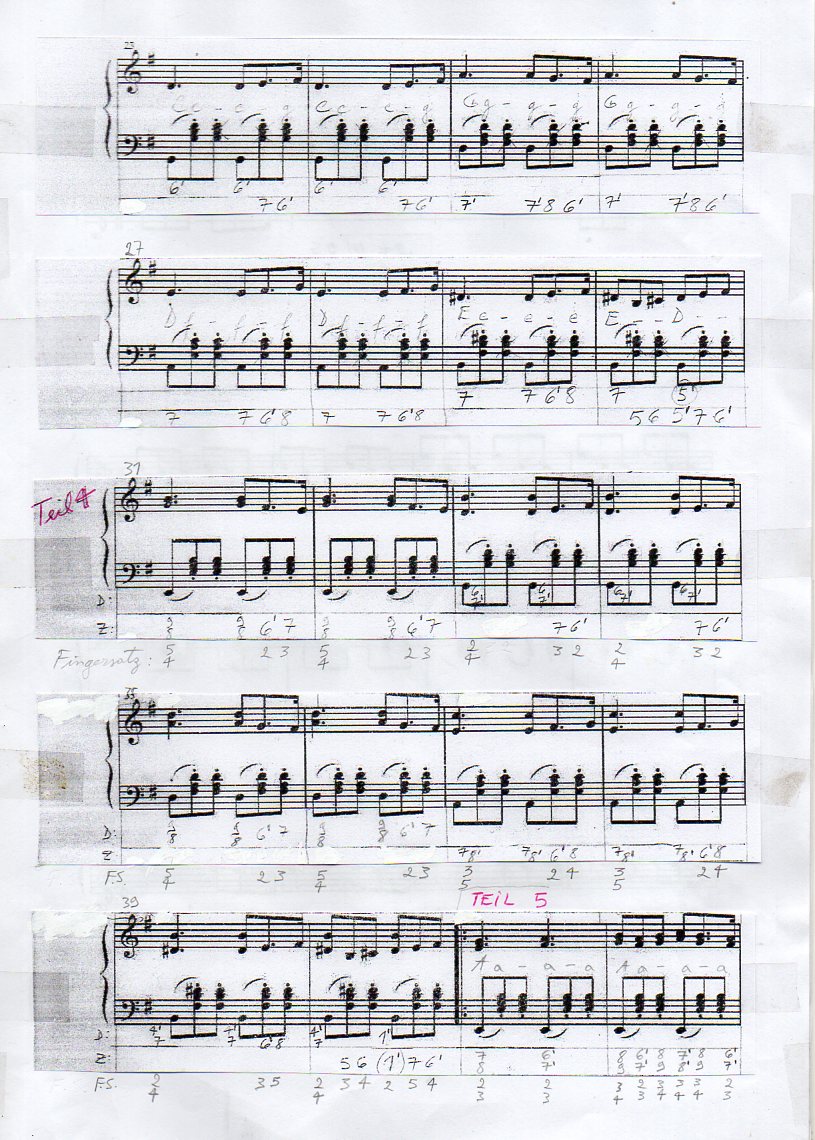 23
C c - c - g C c - c - g G g - g - g G g - g - d
6' 6' 6' 6'
7 6' 7 6' 7' 7' 8 6' 7' 7' 8 6'
27
D f - f - f D f - f - f E e - e - e E - - D - -
7 7 6' 8 7 5'
7 7 6' 8 7 7 6' 8 5 6 5' 7 6'
31
Teil 4
D:
Z: 6' 7 6' 7 7 6' 7 6'
Fingersatz: 5/4 2 3 5/4 2 3 2/4 3 2 2/4 3 2
35
D: 9/8 9/8 6' 7 9/8 9/8 6' 7
Z 7/8' 7/8' 6' 8 7/8' 7/8' 6' 8
F.S. 5/4 2 3 5/4 2 3 3/5 2 4 3/5 2 4
39
TEIL 5
A a - a - a A a - a - a
D: 4'/7 4'/7 6' 8 4'/7 1'
Z: 5 6 (1') 7 6' 7/8 6'/7' 8/9 6'/7' 8/9 7'/8' 8/9 6'/7'
F.S. 2/4 3 5 2/4 3 4 2 5 4 2/3 2/3 3/4 2/3 3/4 3/4 3/4 2/3